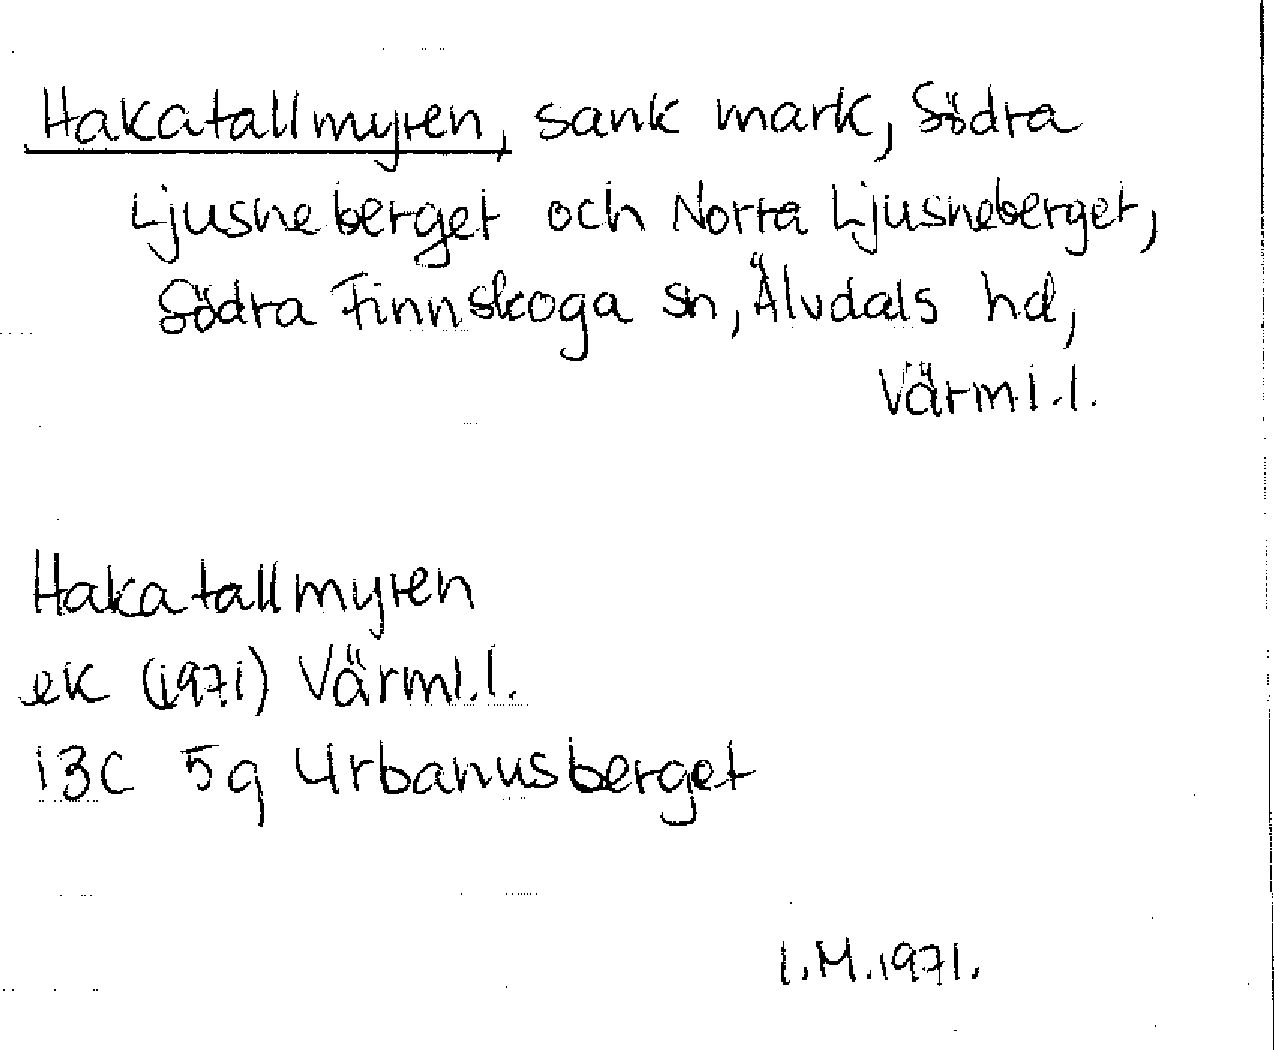 Hakatallmyren, sank mark, Södra
Ljusneberget och Norra Ljusneberget,
Södra Finnskoga sn, Älvdals hd,
Värml.l.
Hakatallmyren
ek (1971) Värml.l.
13C 5g Urbanusberget
I.M.1971.